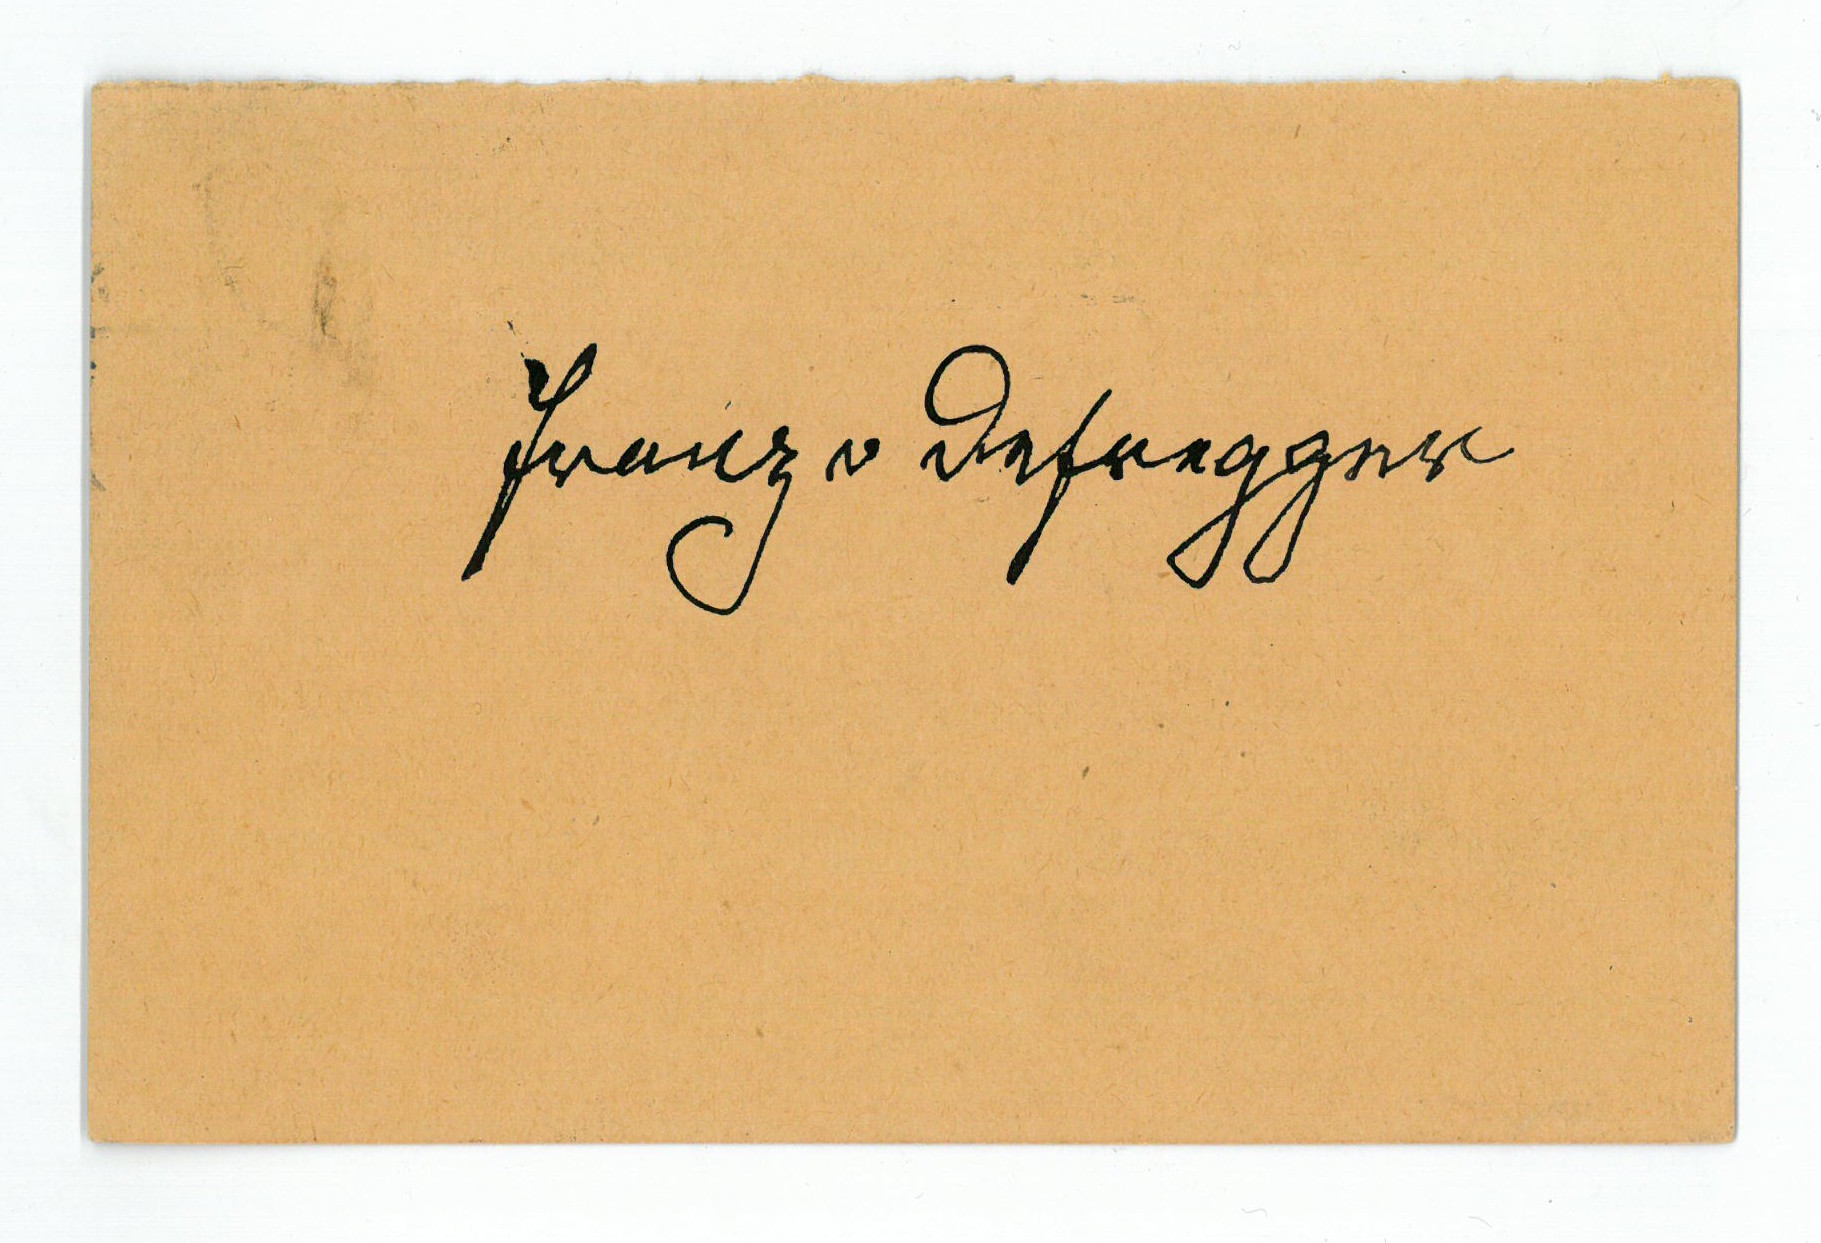 Franz v Defregger